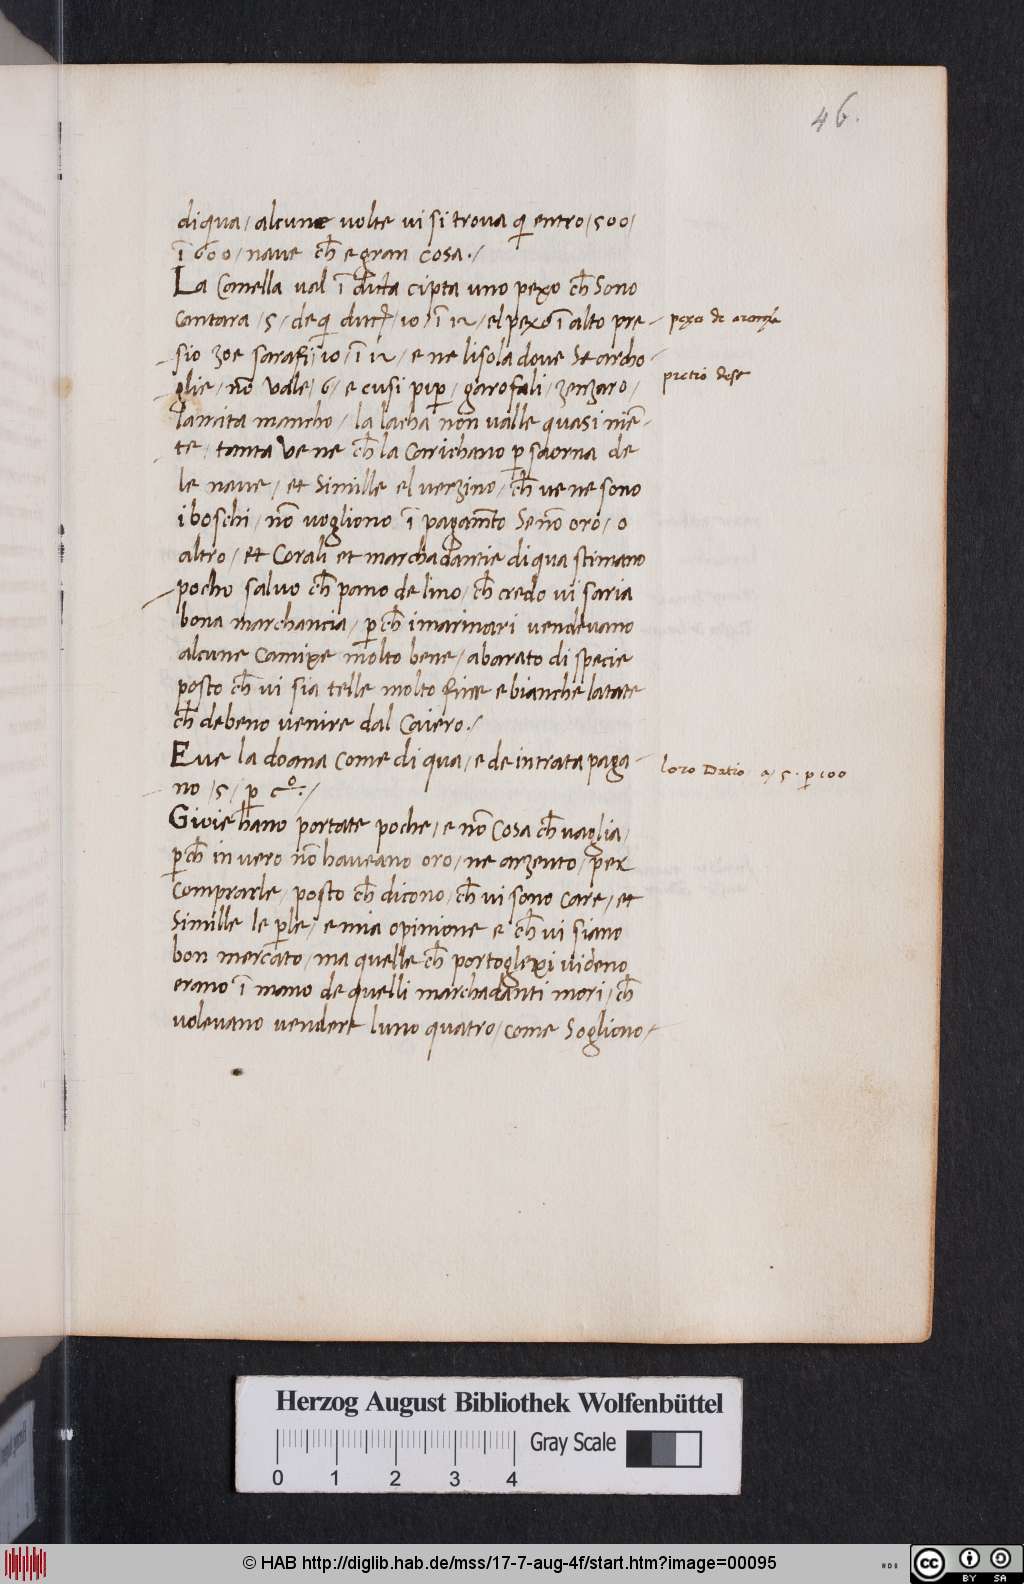 46.
diqua / alcune volte vi si trova q̃ entro / 500 /
ĩ 600 / nave ch̃ e gran cosa . /
La Canella val ĩ dicta cipta uno pexo ch̃ Sono
cantara / 5 / de q̃ / 10 / ĩ 12 / el pexo ĩ alto pre -
sio zoe sarafi / 10 / ĩ 12 / e ne lisola dove Se archo -
glie / nõ vale / 6 / e cusi pip̃ / garofali / zenzaro /
lamita mancho / la lacha non valle quasi niẽ -
te / tanta ve ne ch̃ la carichano p̱ saorna de
le nave / et Simille el verzino / ch̃ ve ne sono
i boschi / nõ vogliono ĩ pagam̃to Se nõ oro / o
altro / et Corali et marchadantie di qua stimano
pocho salvo ch̃ pano de lino / ch̃ credo vi saria
bona marchancia / p̱ch̃ i marinari vendevano
alcune Camixe molto bene / abarato di specie
posto ch̃ vi sia telle molto fine e bianche latate
ch̃ debeno venire dal Caiero . /
Eve la doana come di qua / e de intrata paga -
no / 5 / p̱ cº : /
Gioie hano portate poche / e nõ Cosa ch̃ vaglia /
p̱ch̃ in vero nõ haveano oro / ne arzento / per
comprarle / posto ch̃ dicono / ch̃ vi sono care / et
Simille le p̱le / e mia opinione e ch̃ vi siano
bon mercato / ma quelle ch̃ portoglexi videno
erano ĩ mano de quelli marchadanti mori / ch̃
volevano vendere luno quatro / come Sogliono /
pexo de
pretio dese
loro Datio a 5 . p̱ 100
Herzog August Bibliothek Wolfenbüttel
Gray Scale
0 1 2 3 4
© HAB http://diglib.hab.de/mss/17-7-aug-4f/start.htm?image=00095
cc BY SA